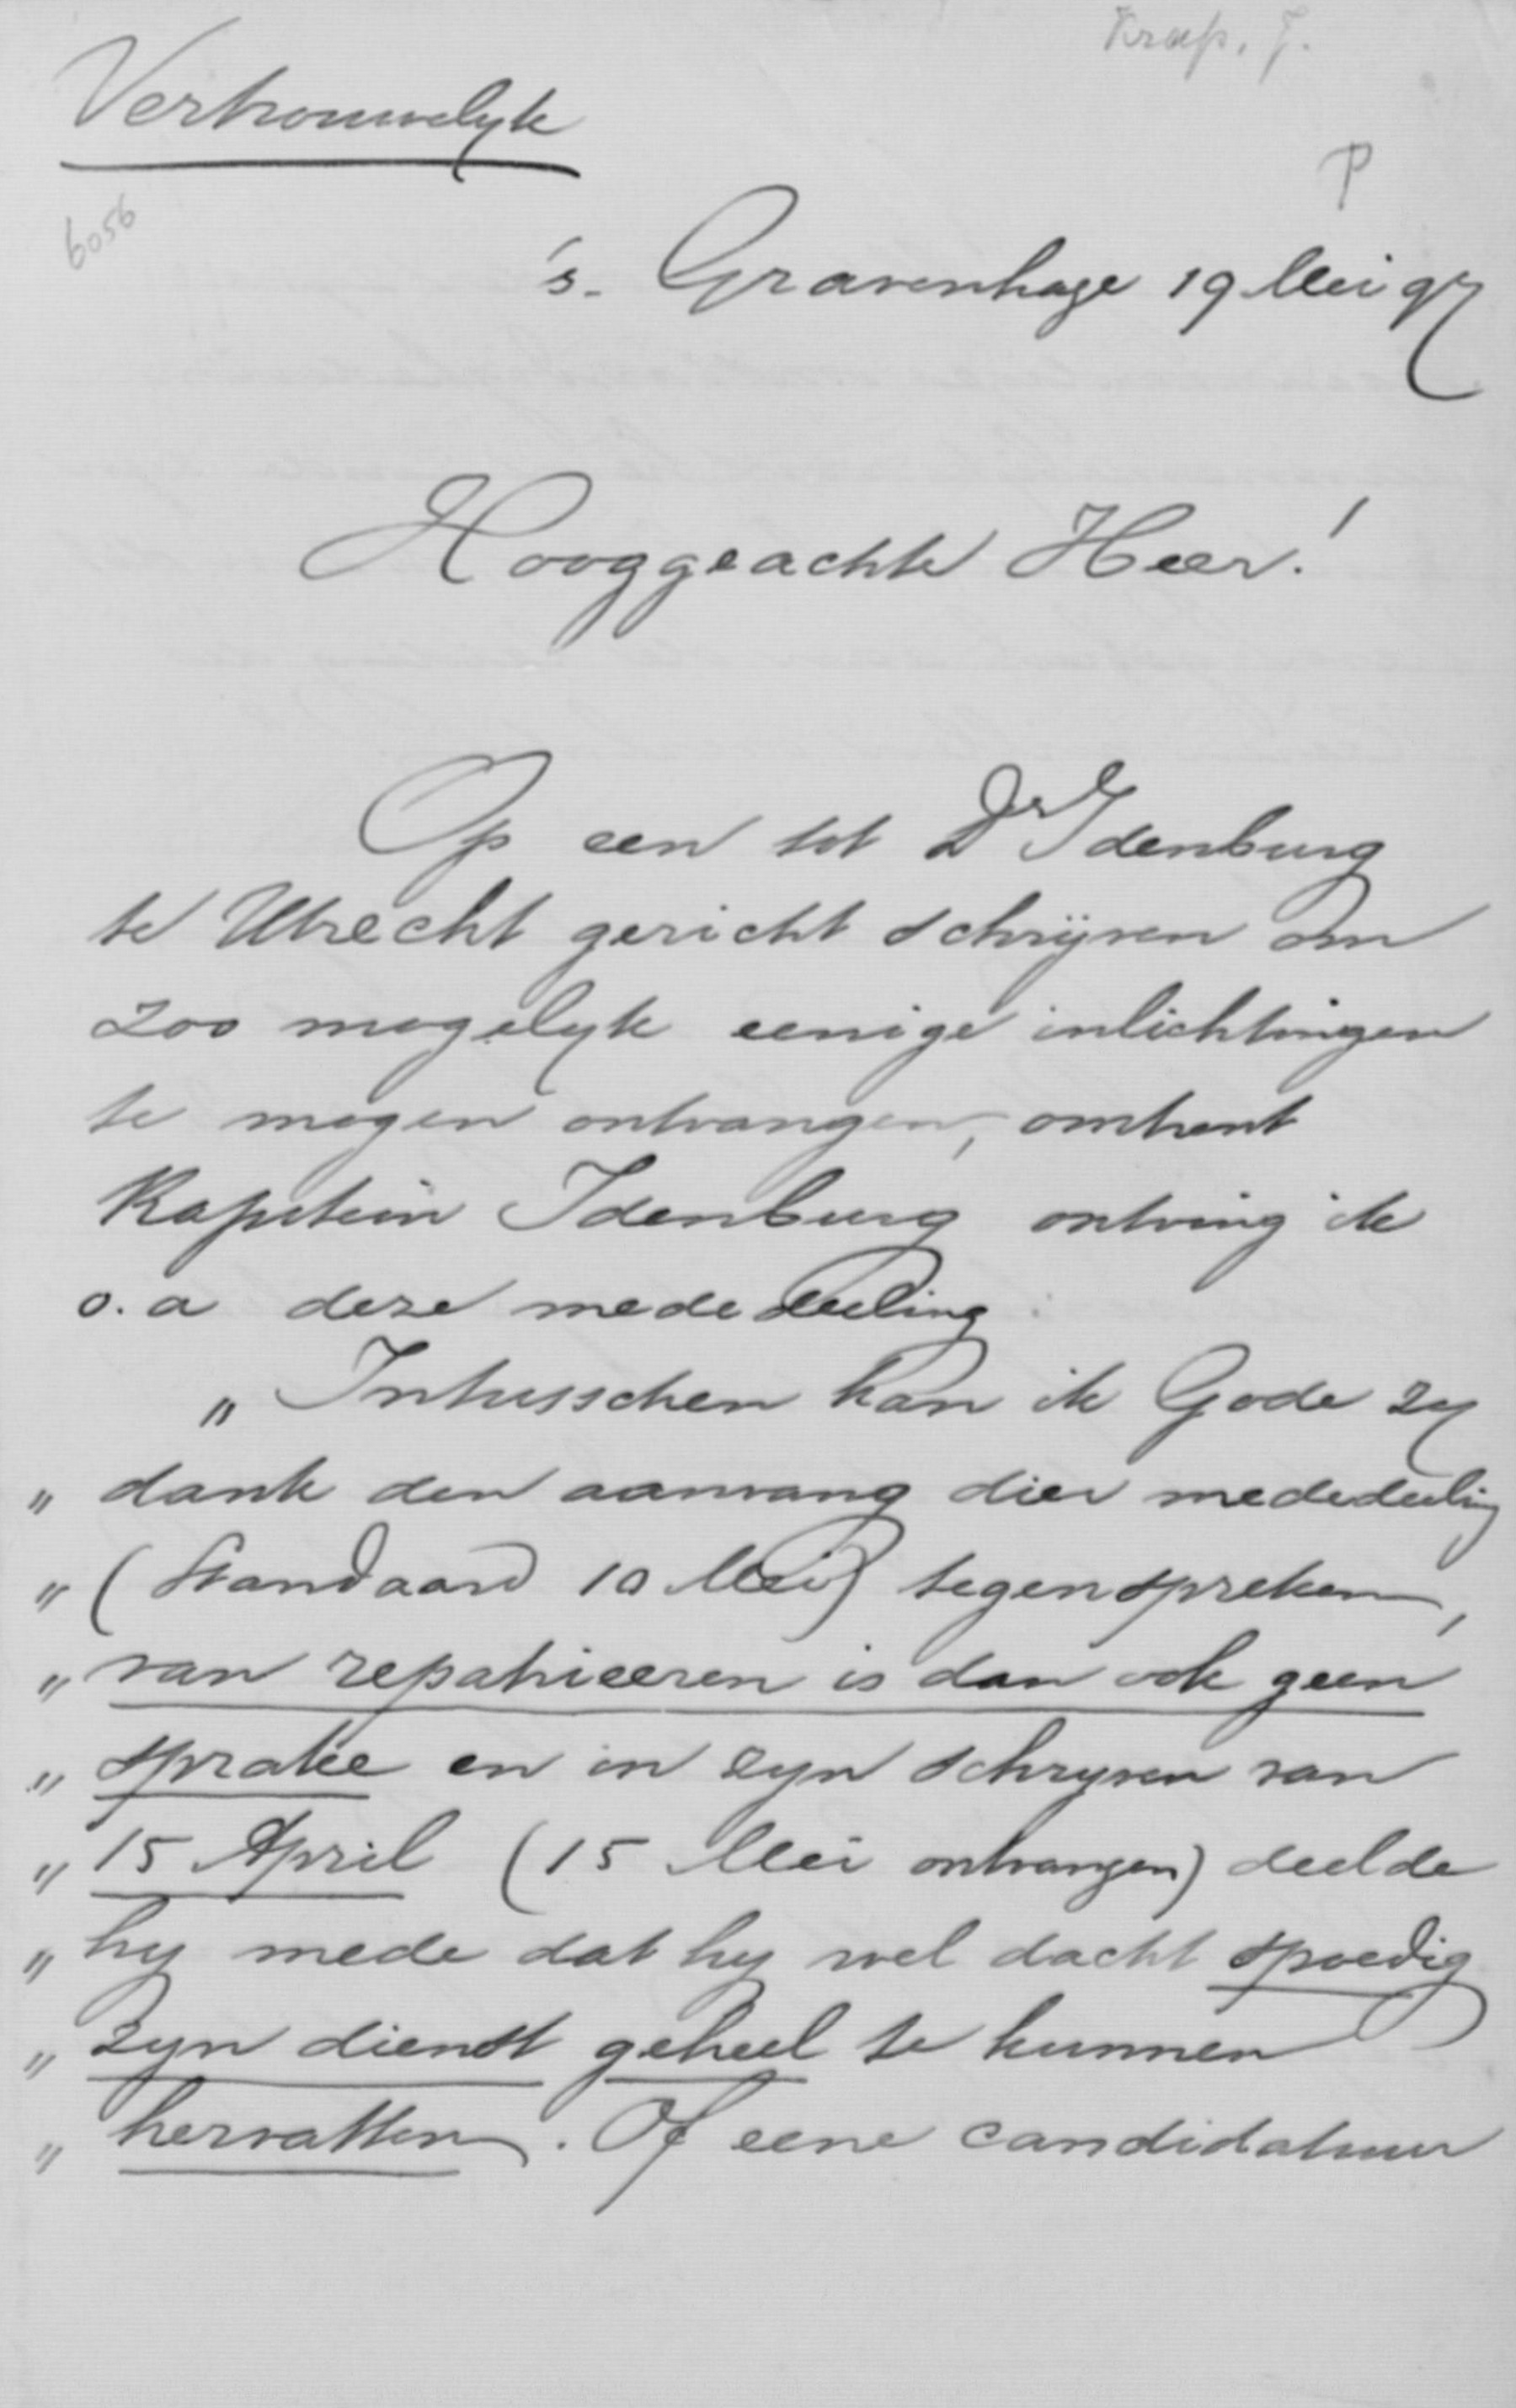 Krap, J.
Vertrouwelyk
P
6056
's-Gravenhage 19 Mei 97
Hooggeachte Heer!
Op een tot Dr Idenburg
te Utrecht gericht schrijven om
zoo mogelyk eenige inlichtingen
te mogen ontvangen, omtrent
Kapitein Idenburg ontving ik
o.a deze mededeeling:
„ Intusschen kan ik Gode zy
„ dank den aanvang dier mededeeling
„ (Standaard 10 Mei) tegenspreken,
„ van repatrieeren is dan ook geen
„ sprake en in zyn schryven van
„ 15 April (15 Mei ontvangen) deelde
„ hy mede dat hy wel dacht spoedig
„ zyn dienst geheel te kunnen
„ hervatten. Of eene candidatuur